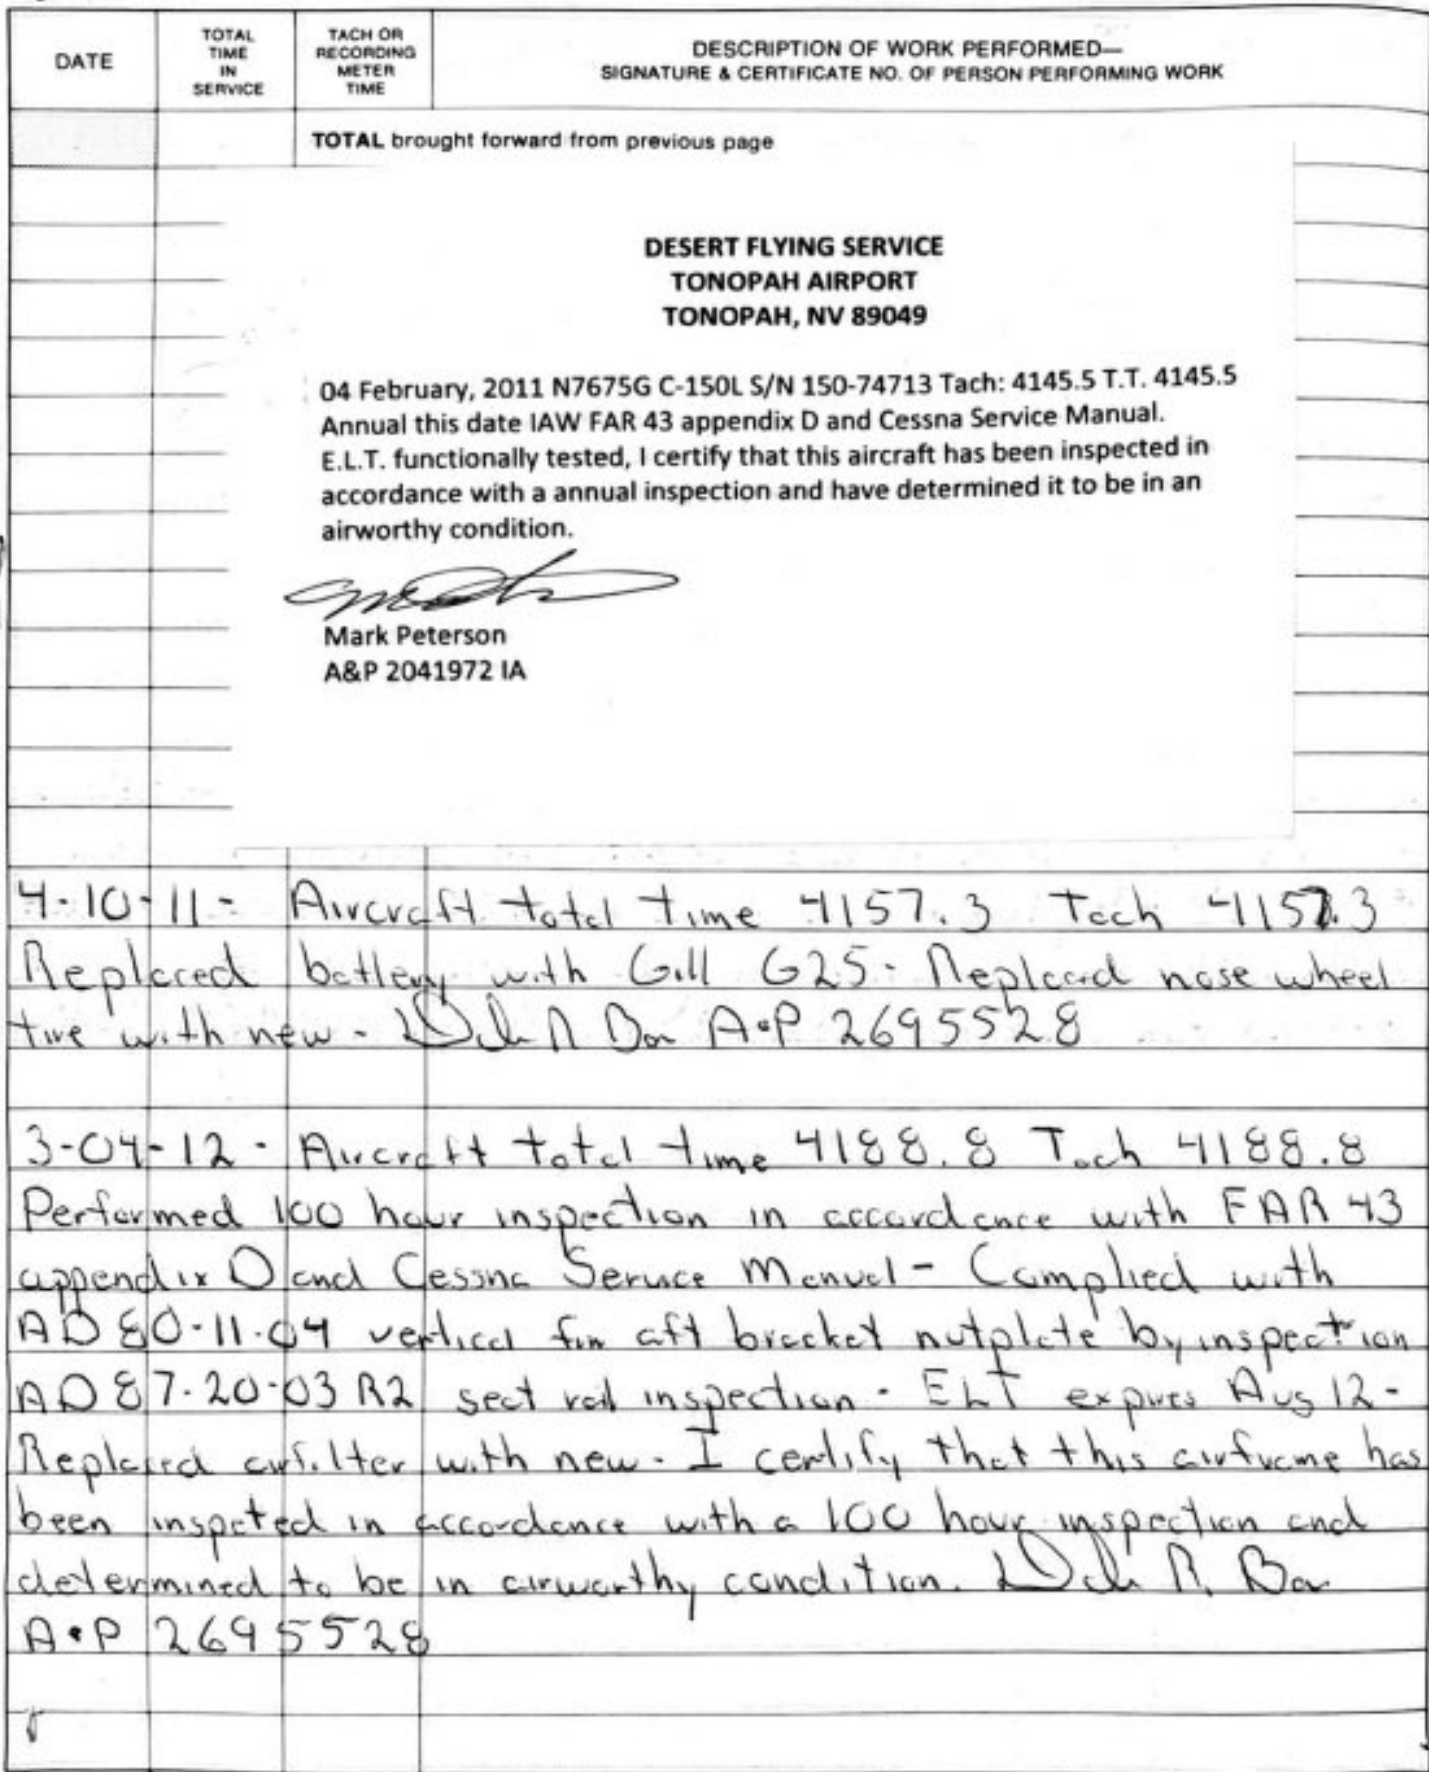 DATE
TOTAL TIME IN SERVICE
TACH OR RECORDING METER TIME
DESCRIPTION OF WORK PERFORMED—
SIGNATURE & CERTIFICATE NO. OF PERSON PERFORMING WORK
TOTAL brought forward from previous page
DESERT FLYING SERVICE
TONOPAH AIRPORT
TONOPAH, NV 89049
04 February, 2011 N7675G C-150L S/N 150-74713 Tach: 4145.5 T.T. 4145.5
Annual this date IAW FAR 43 appendix D and Cessna Service Manual.
E.L.T. functionally tested, I certify that this aircraft has been inspected in
accordance with a annual inspection and have determined it to be in an
airworthy condition.
Mark Peterson
A&P 2041972 IA
4-10-11- Aircraft total time 4157.3 Tach 4157.3
Replaced battery with Gill G25- Replaced nose wheel
tire with new - A•P 2695528
3-04-12- Aircraft total time 4188.8 Tach 4188.8
Performed 100 hour inspection in accordance with FAR 43
appendix D and Cessna Service Manual - Complied with
AD 80-11-04 vertical fin aft bracket nutplate by inspection
AD 87-20-03 R2 seat rail inspection - ELT expires Aug 12-
Replaced airfilter with new - I certify that this airframe has
been inspeted in accordance with a 100 hour inspection and
determined to be in airworthy condition.
A•P 2695528